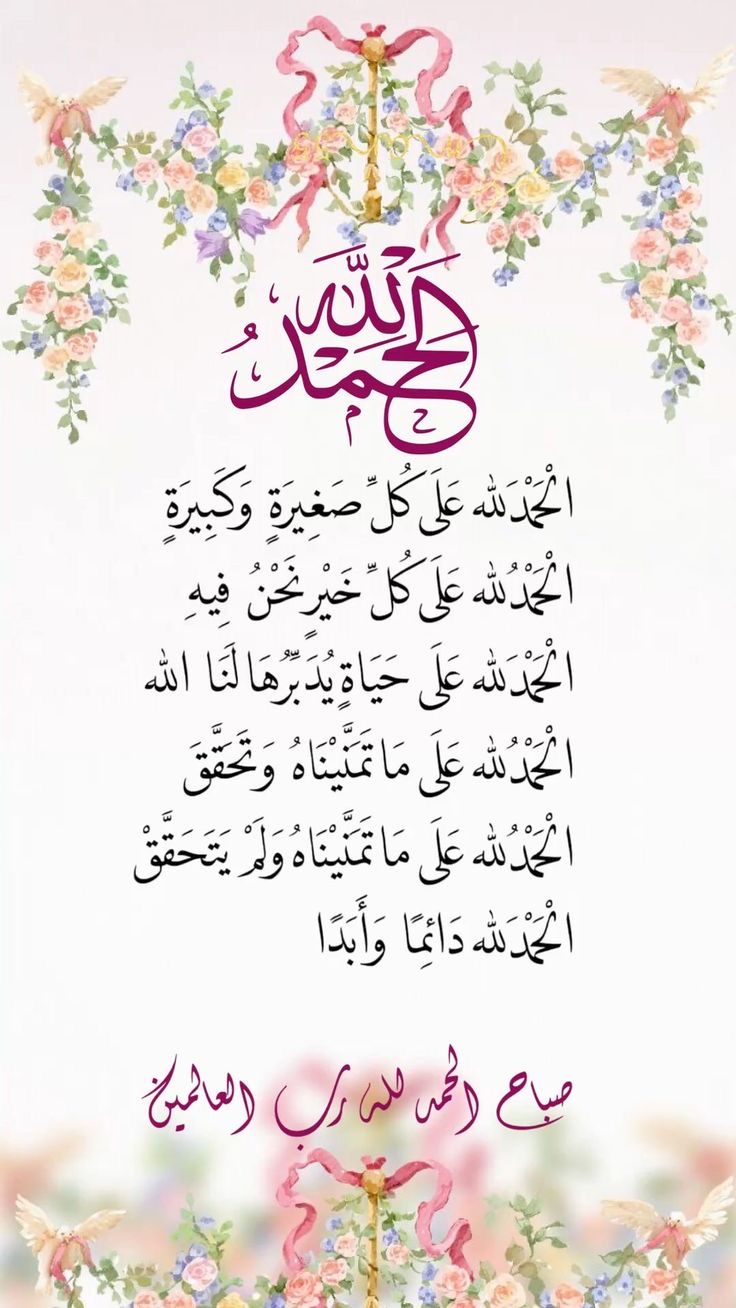 الحمدُ لله
الْحَمْدَلله عَلَى كُلِّ صَغِيرَةٍ وَكَبِيرَةٍ
الْحَمْدُلله عَلَى كُلِّ خَيْرٍ نَحْنُ فِيهِ
الْحَمْدَلله عَلَى حَيَاةٍ يُدَبِّرُهَا لَنَا الله
الْحَمْدُلله عَلَى مَا تَمَنَّيْنَاهُ وَتَحَقَّقَ
الْحَمْدُلله عَلَى مَا تَمَنَّيْنَاهُ وَلَمْ يَتَحَقَّقْ
الْحَمْدَلله دَائِمًا وَأَبَدًا
صباح الحمد لله رب العالمين